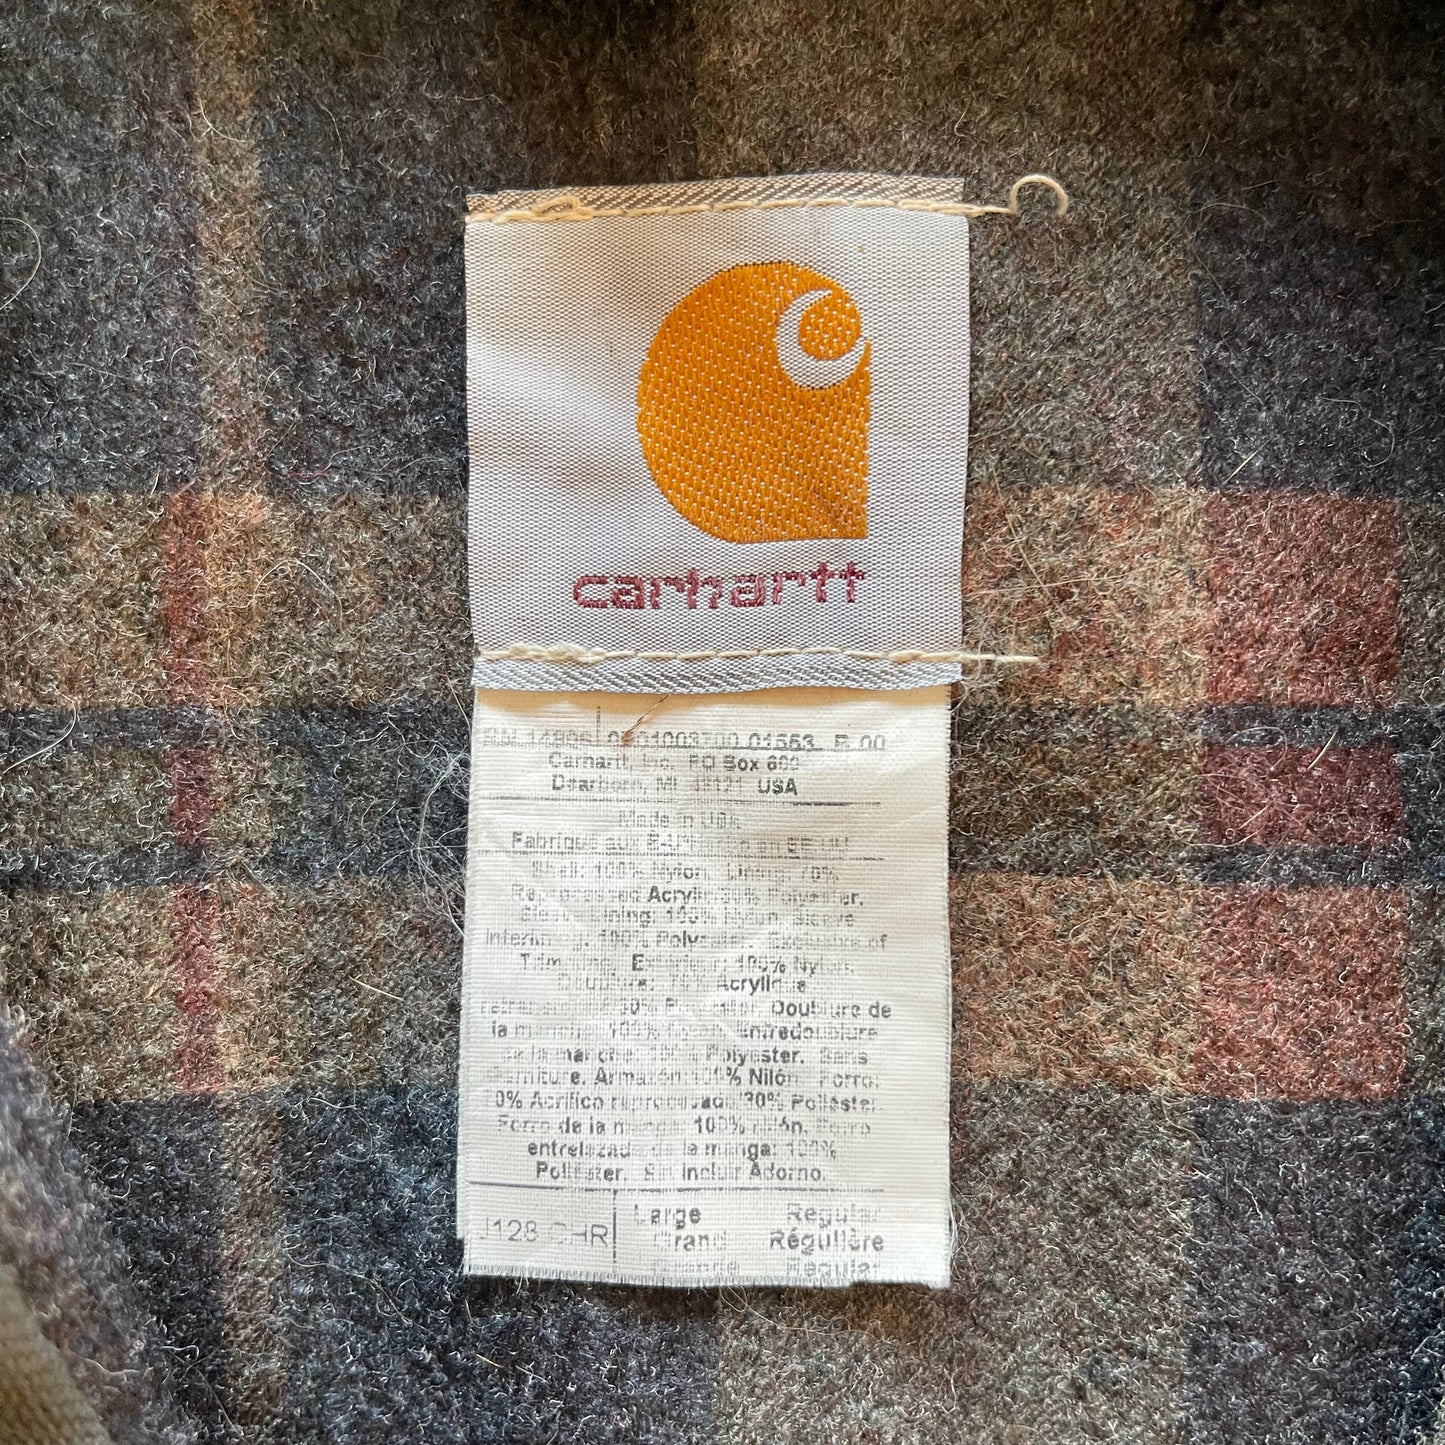 carhartt
RN 14806 01553 R 00
Carhartt, Inc. PO Box
Dearborn, MI 48121 USA
Made in USA
Fabrique aux
Shell: 100% Nylon. Lining: 70%
Reprocessed Acrylic/30% Polyester.
Sleeve Lining: 100% Nylon. Sleeve
Interlining: 100% Polyester. Exclusive of
Trimming. Extérieur: 100% Nylon.
Doublure: 70% Acrylique
30% Polyester. Doublure de
la manche: 100% Nylon. Entredoublure
de la manche: 100% Polyester. Sans
Garniture. Armazón: 100% Nilón. Forro:
70% Acrílico reprocesado/30% Poliéster.
Forro de la manga: 100% nilón. Forro
entrelazado de la manga: 100%
Poliéster. Sin Incluir Adorno.
J128 CHR
Large Regular
Grand Régulière
Grande Regular